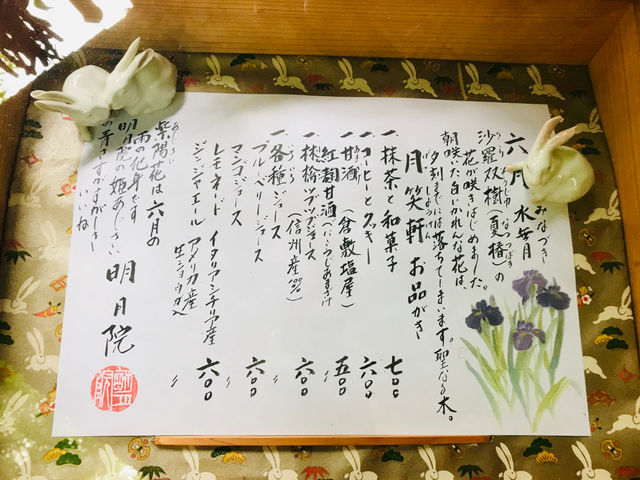 六月 水無月
みなづき
沙羅双樹(夏椿)の
さらそうじゅ なつつばき
花が咲きはじめました。
朝咲た白いかれんな花は、
夕刻までには落ちてしまいます。聖なる木。
月笑軒 お品がき
げっしょうけん
一、抹茶と和菓子 七〇〇
一、コーヒーとクッキー 六〇〇
一、甘酒(倉敷塩屋) 五〇〇
あまざけ
紅麹甘酒(べにこうじあまざけ) 〃
一、林檎ツブツブジュース 六〇〇
りんご
(信州産)
一、各種ジュース
ブルーベリージュース 六〇〇
マンゴジュース 〃
レモネード イタリアシチリア産 六〇〇
ジンジャエール アメリカ産 〃
生ショウガ入
紫陽花は六月の
あじさい
雨の化身です
明月院の姫あじさい
の青さすみずみずしき
いいね
明月院